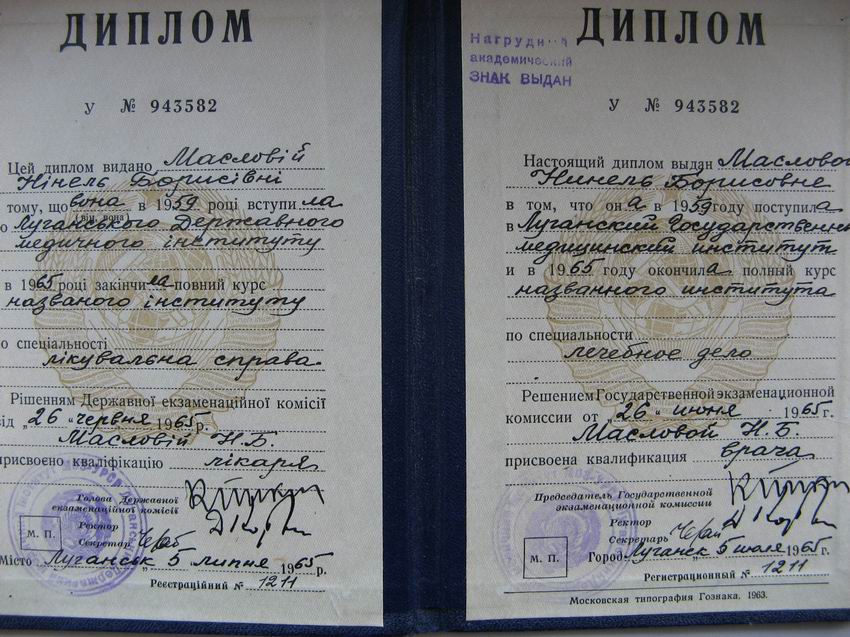 ДИПЛОМ
У № 943582
Цей диплом видано Масловій
Нінель Борисівні
тому, що вона в 1959 році вступила
(він, вона)
Луганського Державного
медичного інституту
в 1965 році закінчила повний курс
названого інституту
спеціальності
лікувальна справа
Рішенням Державної екзаменаційної комісії
від „26" червня 1965 р.
Масловій Н.Б.
присвоено кваліфікацію лікаря
Голова Державної
екзаменаційної комісії
Ректор
Секретар
М. П.
Місто Луганськ „5" липня 1965 р.
Реєстраційний № 1211
ДИПЛОМ
Нагрудный
академический
ЗНАК ВЫДАН
У № 943582
Настоящий диплом выдан Маслово
Нинель Борисовне
в том, что она в 1959 году поступила
в Луганский Государственн
медицинский институт
и в 1965 году окончила полный курс
названного института
по специальности
лечебное дело
Решением Государственной экзаменационной
комиссии от „26" июня 1965 г.
Масловой Н.Б.
присвоена квалификация врача
Председатель Государственной
экзаменационной комиссии
Ректор
Секретарь
М. П.
Город Луганск „5" июля 1965 г.
Регистрационный № 1211
Московская типография Гознака. 1963.